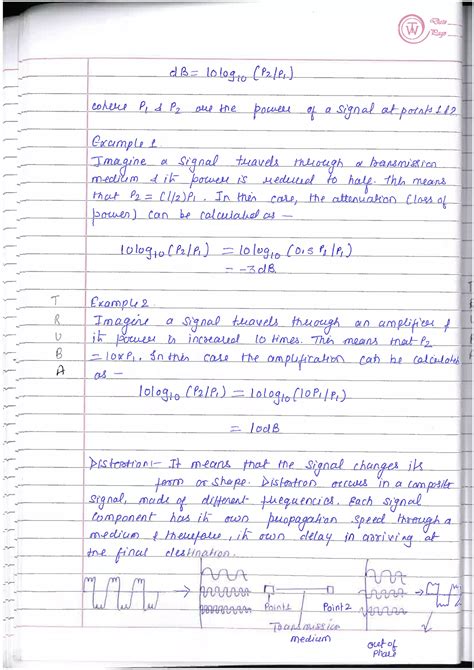 TW
Date
Page
dB = 10log10 (P2/P1)
where P1 & P2 are the powers of a signal at points 1&2
Example 1
Imagine a signal travels through a transmission
medium & it power is reduced to half. This means
that P2 = (1/2)P1. In this case, the attenuation (loss of
power) can be calculated as —
10log10 (P2/P1) = 10log10 (0.5 P1/P1)
= -3dB
Example 2.
Imagine a signal travels through an amplifier &
it power is increased 10 times. This means that P2
= 10xP1. In this case the amplification can be calculated
as —
10log10 (P2/P1) = 10log10 (10P1/P1)
= 10dB
Distortion:- It means that the signal changes its
form or shape. Distortion occurs in a composite
signal, made of different frequencies. Each signal
component has it own propagation speed through a
medium & therefore, it own delay in arriving at
the final destination.
Point1 Point2
Transmission
medium
out of
Phase
T
R
U
B
A